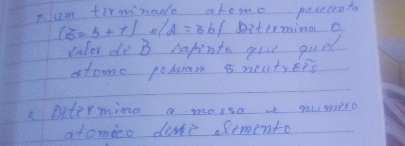 7. um terminado atomo posecento
(Z = b + 7) e/A = 3b/ Ditermina o
valor de B sapinto que quel
atomo posuam 5 neutrões
8. Ditermino a massa e numero
atomico deste Elemento